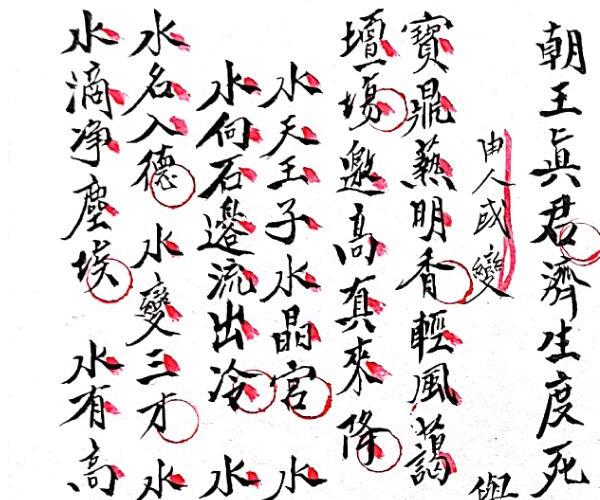 朝王眞君濟生度死
由人或變
寶鼎爇明香輕風藹
壇場邀高真來降
水天王子水晶宮 水
水向石邊流出冷 水
水名入德 水變三才 水
水滴净塵埃 水有高